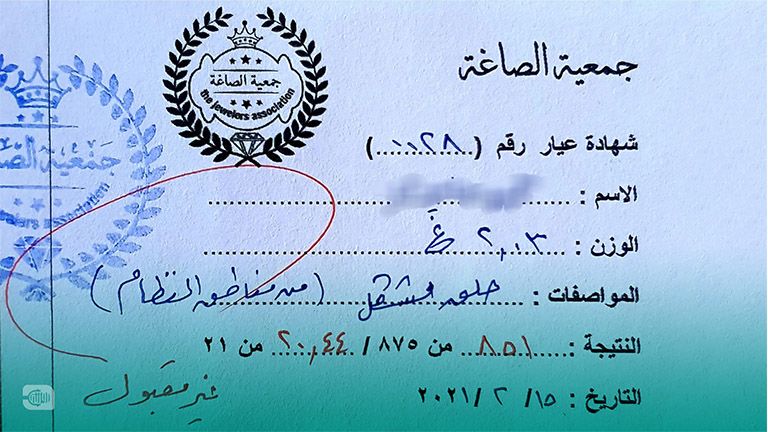 جمعية الصاغة
the jewelers association
جمعية الصاغة
the jewelers association
جمعية الصاغة
شهادة عيار رقم (...٠٠٢٨...)
الاسم :
الوزن : ٢,٠٣ غ
المواصفات : حلقه مشكل (من مناطق النظام)
النتيجة : ٨٥١ من ٨٧٥ / ٢٠,٤٤ من ٢١
التاريخ : ١٥/ ٢ /٢٠٢١
غير مقبول